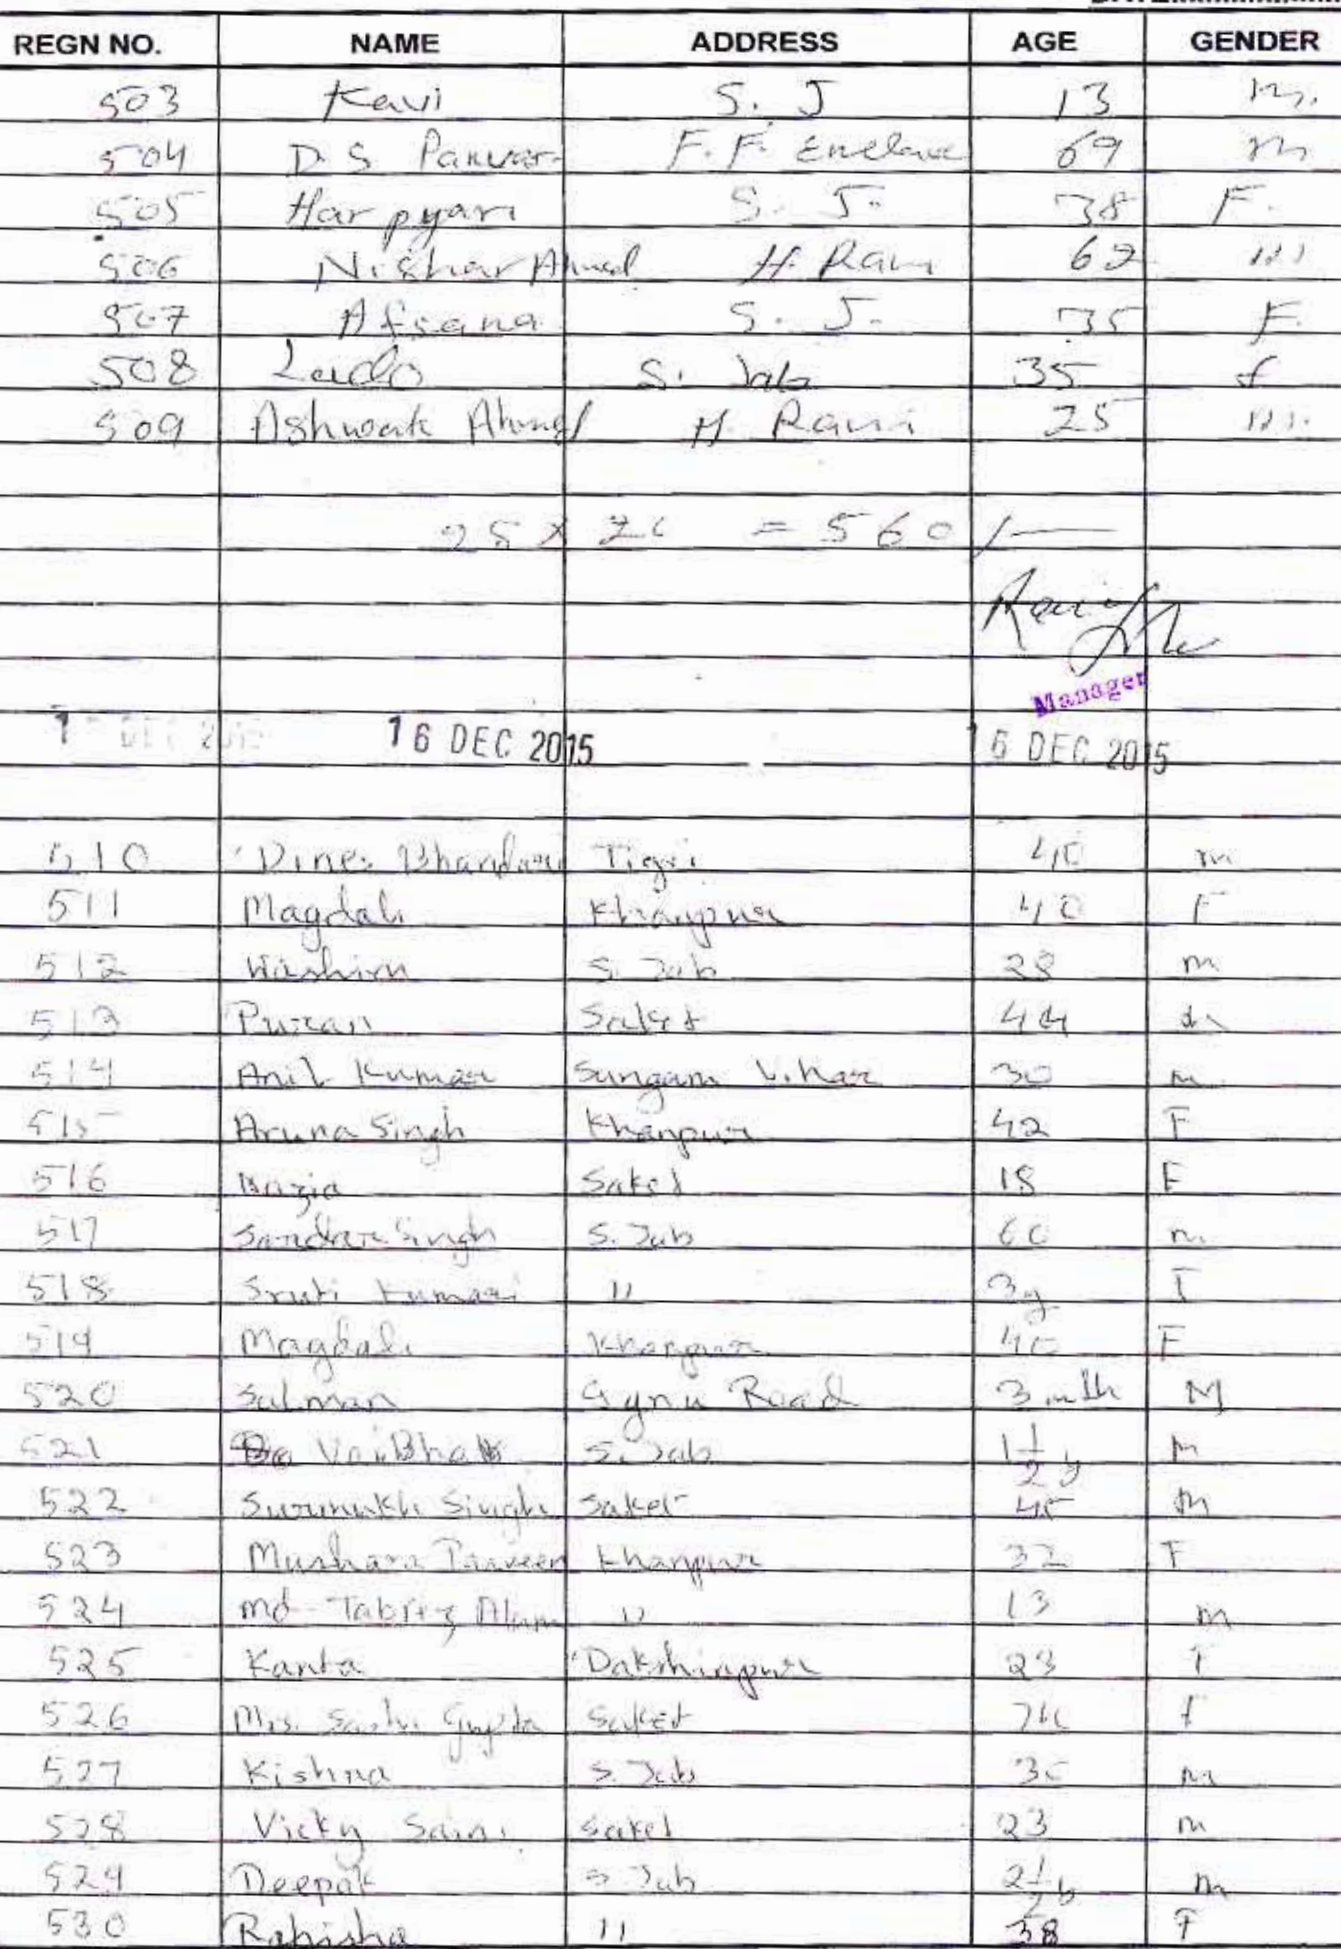 REGN NO. NAME ADDRESS AGE GENDER
503 Kavi S. J 13 m.
504 D. S Panwar F. F. Enclave 69 m
505 Har pyari S. J. 38 F.
506 Nishar Ahmed H. Rani 62 m
507 Afsana S. J. 35 F.
508 Lado S. Jab 35 f
509 Ashwak Ahmed H Rani 25 m.
= 560/-
Manager
16 DEC 2015
16 DEC 2015
510 Dines Bhandari Tigri 40 m
511 Magdali Khanpur 40 F
512 Washim S. Jab 28 m
513 Puran Saket 44 m
514 Anil Kumar Sangam Vihar 30 m
515 Aruna Singh Khanpur 42 F
516 Nazia Saket 18 F
517 Singh S. Jub 60 m
518 Sruti Kumari 11 3y F
519 Magdali Khanpur 40 F
520 Salman Road 3 mth M
521 S. Jab 1 1/2 y M
522 Singh Saket 45 m
523 Parveen Khanpur 32 F
524 Md Tabrez Alam 11 13 m
525 Kanta Dakshinpur 23 F
526 Mrs. Gupta Saket f
527 Kishna S. Jub m
528 Vicky Saini Saket 23 m
529 Deepak S Jub 2 1/2 m
530 Rahisha 11 38 F